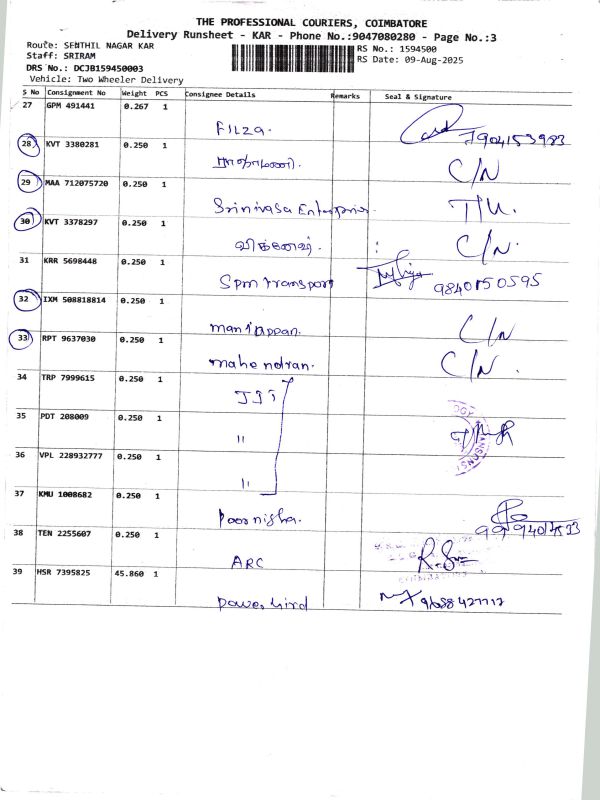 THE PROFESSIONAL COURIERS, COIMBATORE
Delivery Runsheet - KAR - Phone No.:9047080280 - Page No.:3
Route: SENTHIL NAGAR KAR
RS No.: 1594500
Staff: SRIRAM
RS Date: 09-Aug-2025
DRS No.: DCJB159450003
Vehicle: Two Wheeler Delivery
S No Consignment No Weight PCS Consignee Details Remarks Seal & Signature
27 GPM 491441 0.267 1
Filza. 7904153983
28 KVT 3380281 0.250 1
C/N
29 MAA 712075720 0.250 1
Srinivasa Enterprises. T/U.
30 KVT 3378297 0.250 1
C/N.
31 KRR 5698448 0.250 1
Spm transport 9840150595
32 IXM 508818814 0.250 1
maniappan. C/N
33 RPT 9637030 0.250 1
mahendran. C/N.
34 TRP 7999615 0.250 1
JJI
35 PDT 208009 0.250 1
"
36 VPL 228932777 0.250 1
"
37 KMU 1008682 0.250 1
Poornisha.
38 TEN 2255607 0.250 1
ARC
39 HSR 7395825 45.860 1
Power bird 9688427717